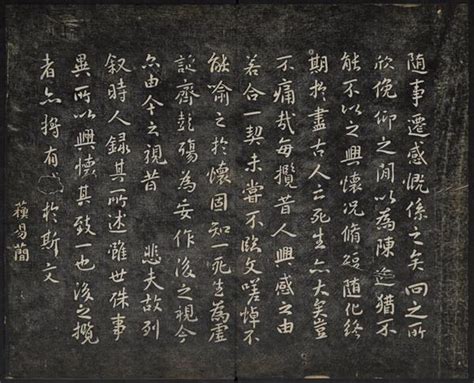 随事遷感慨係之矣向之所
欣俛仰之閒以為陳迹猶不
能不以之興懷况脩短随化終
期於盡古人云死生亦大矣豈
不痛哉每攬昔人興感之由
若合一契未嘗不臨文嗟悼不
能喻之於懷固知一死生為虛
誕齊彭殤為妄作後之視今
亦由今之視昔 悲夫故列
叙時人録其所述雖世殊事
異所以興懷其致一也後之攬
者亦將有於斯文
蘇易簡